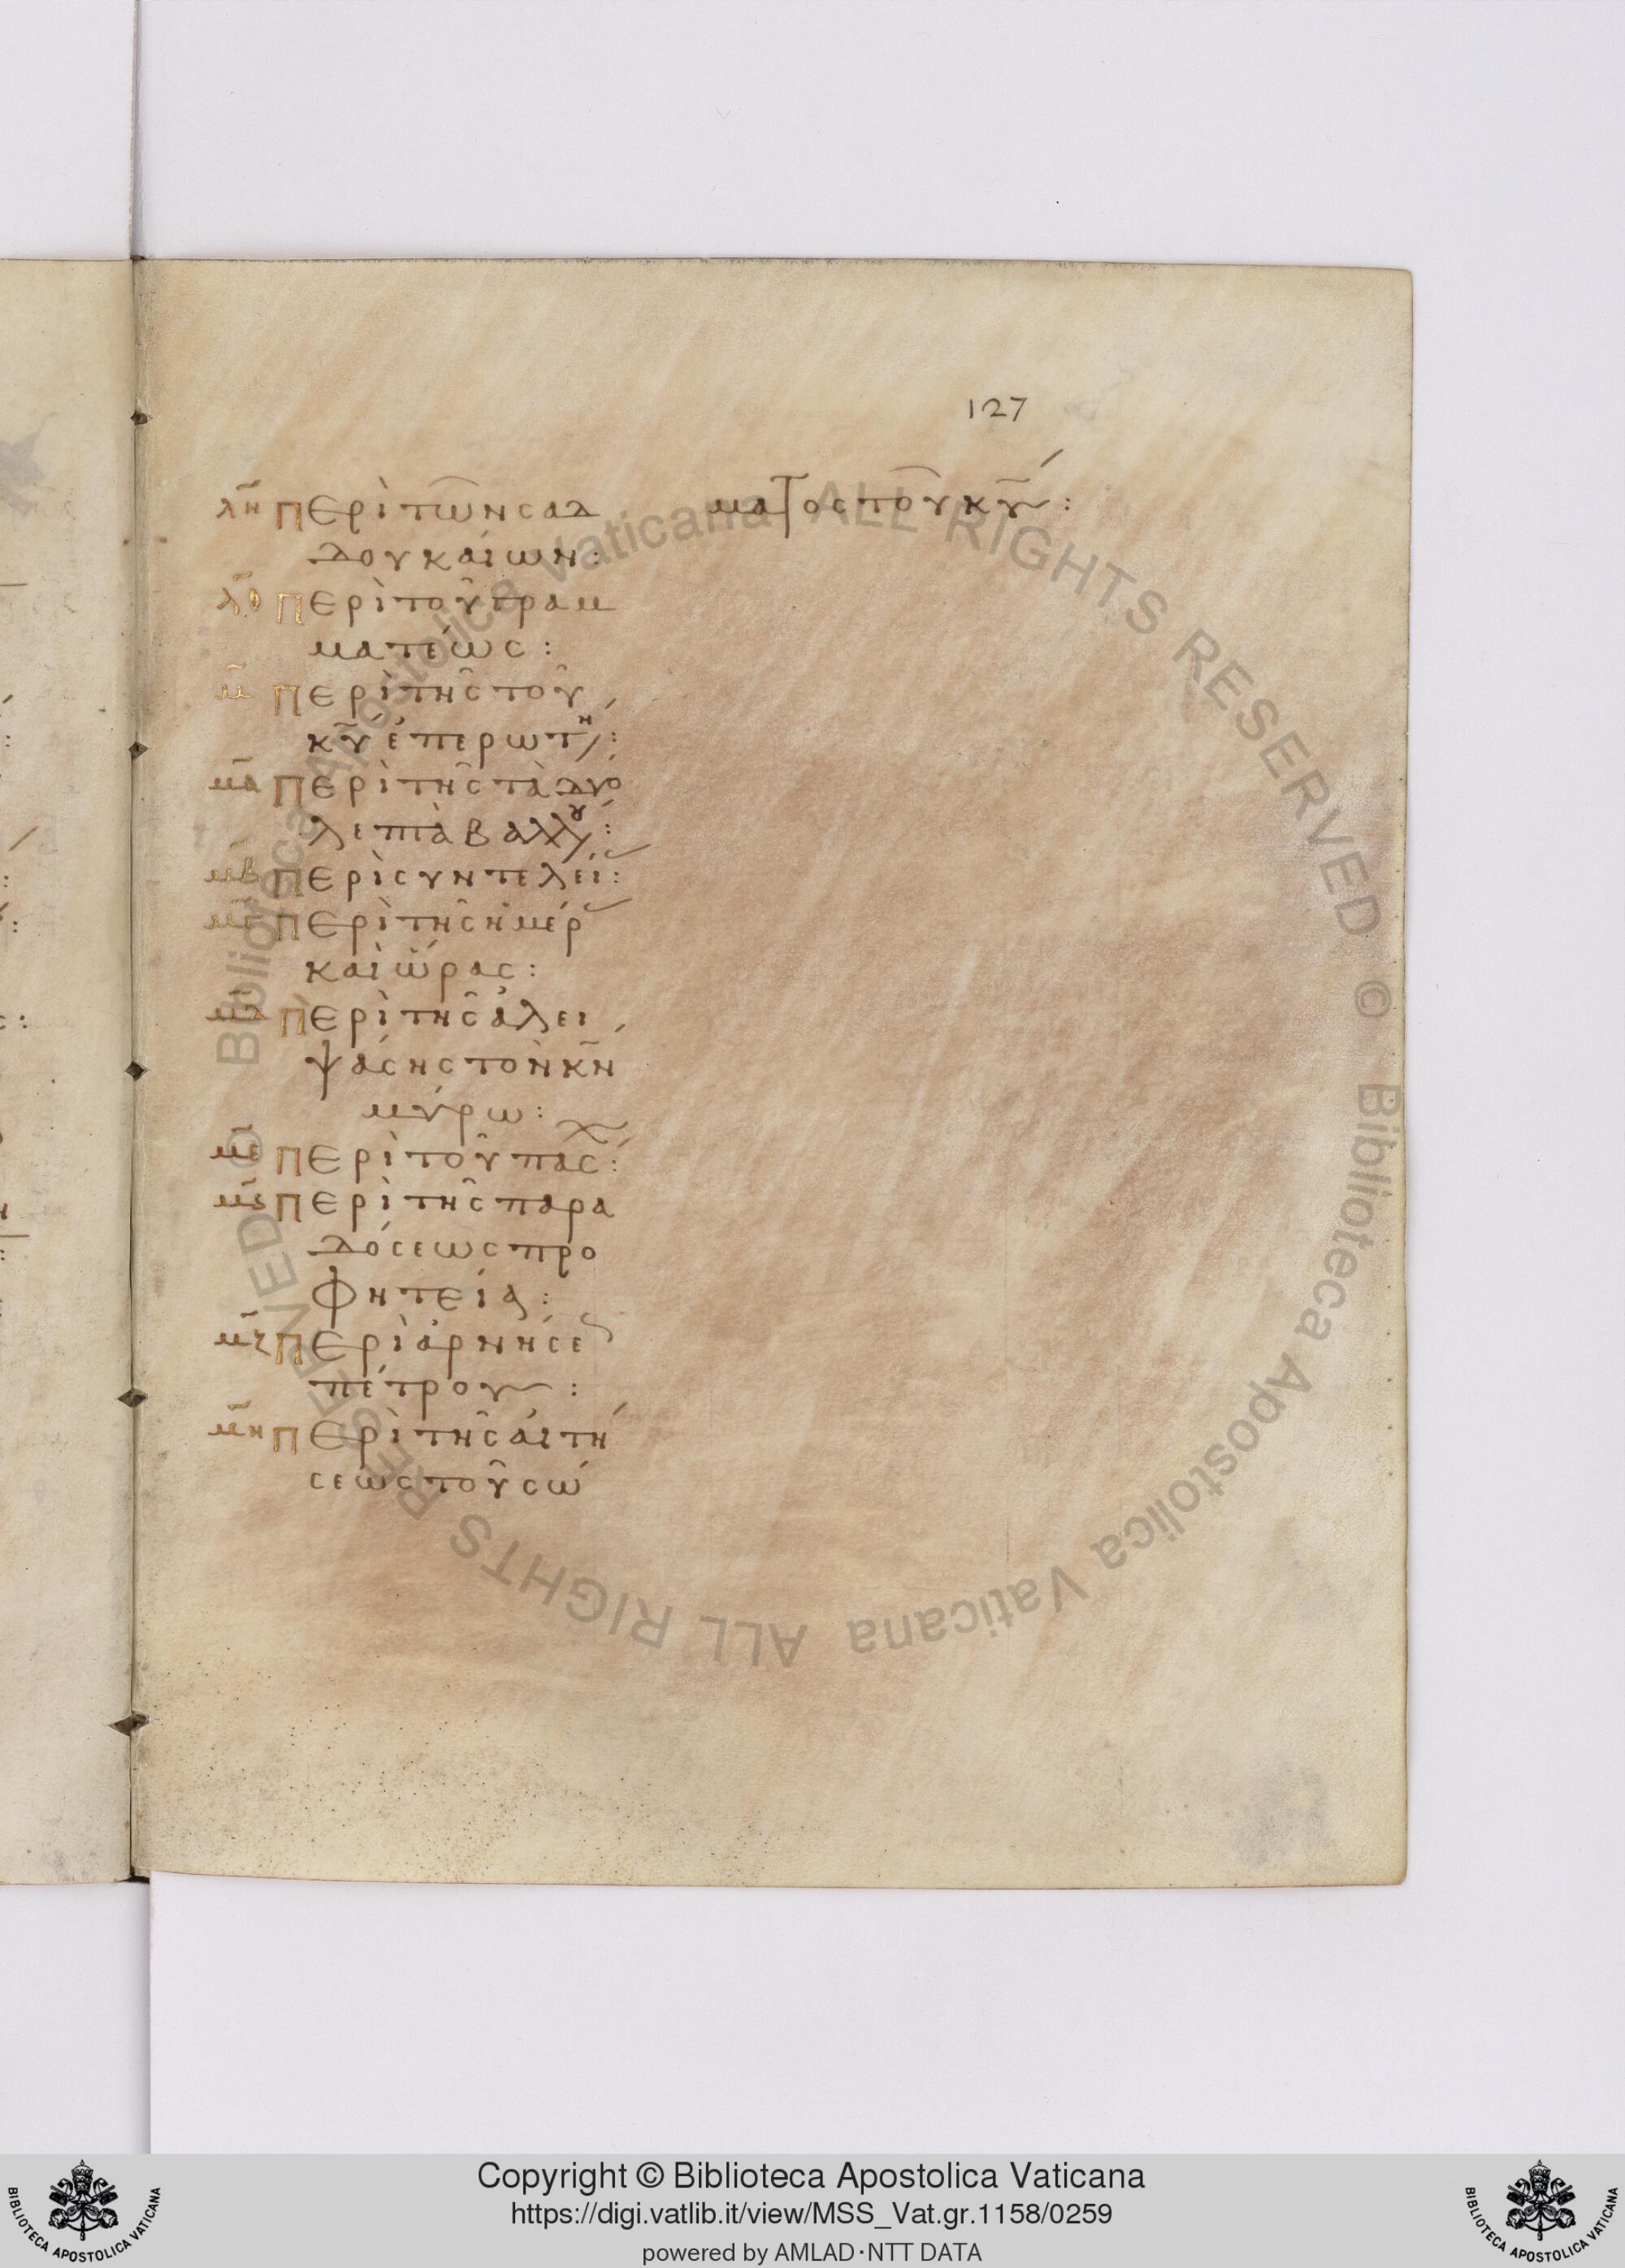 127
λη Περὶ τῶν σαδ
δουκαίων:
λθ Περὶ τοῦ γραμ
ματέως:
μ Περὶ τῆς τοῦ
κυ ἐπερωτη:
μα Περὶ τῆς τὰ δύο
λεπτὰ βαλλου:
μβ Περὶ συντελεί:
μγ Περὶ τῆς ἡμέρ
καὶ ὥρας:
μδ Περὶ τῆς ἀλει
ψάσης τὸν κν
μύρω:
με Περὶ τοῦ πάσχ:
μς Περὶ τῆς παρα
δόσεως προ
φητεία:
μζ Περὶ ἀρνήσε
πέτρου:
μη Περὶ τῆς αἰτή
σεως τοῦ σώ
ματος τοῦ κυ:
Biblioteca Apostolica Vaticana ALL RIGHTS RESERVED © Biblioteca Apostolica Vaticana ALL RIGHTS RESERVED ©
Copyright © Biblioteca Apostolica Vaticana
https://digi.vatlib.it/view/MSS_Vat.gr.1158/0259
powered by AMLAD·NTT DATA
BIBLIOTECA APOSTOLICA VATICANA
BIBLIOTECA APOSTOLICA VATICANA